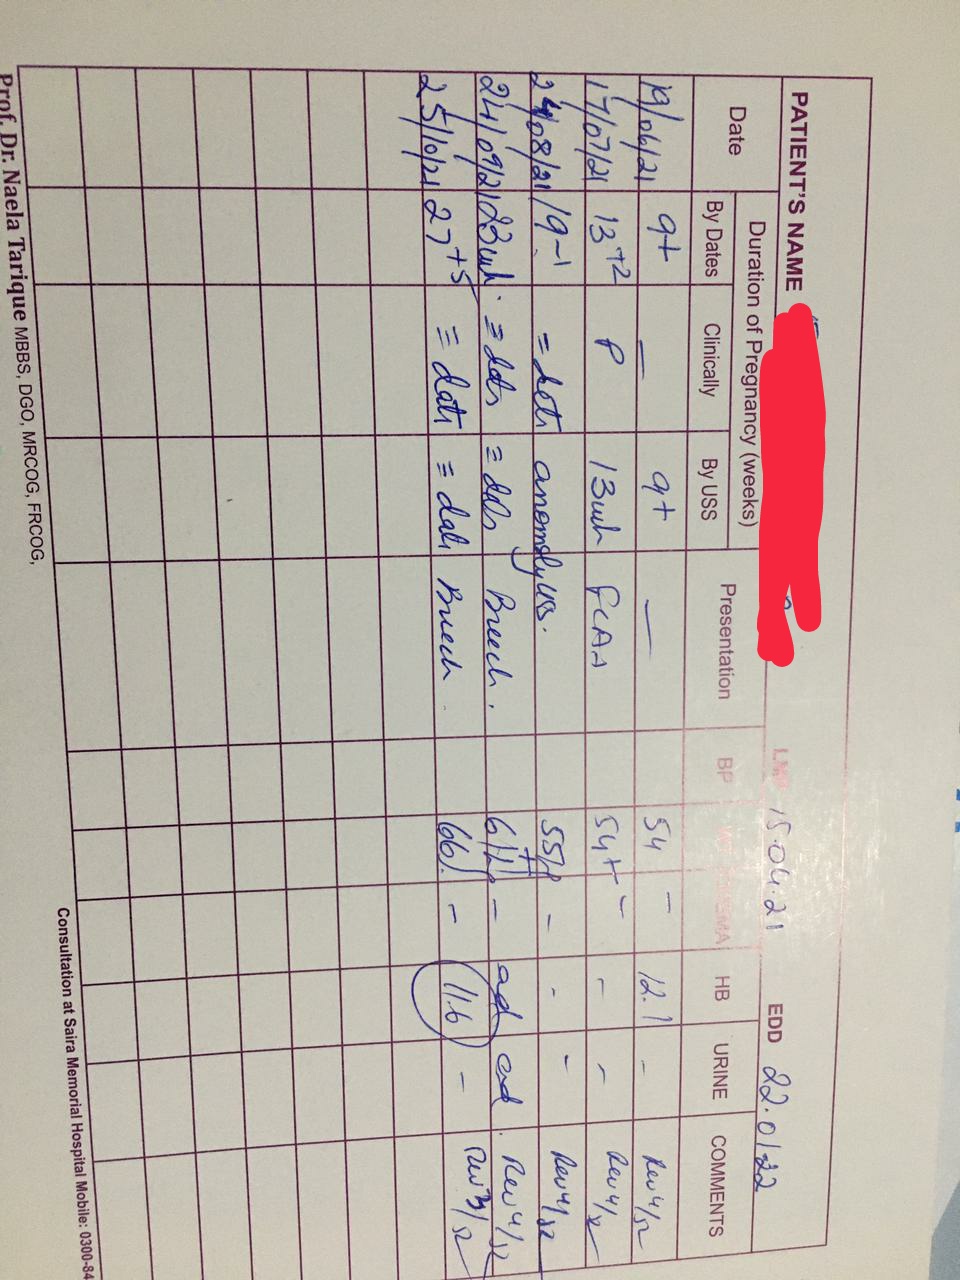 PATIENT'S NAME LMP 15.04.21 EDD 22.01.22
Date Duration of Pregnancy (weeks) Presentation BP HB URINE COMMENTS
By Dates Clinically By USS
19/06/21 9+ – 9+ – 54 – 12.1 – Rev 4/52
17/07/21 13+2 P 13wk 54+ – – – Rev 4/52
24/08/21 19-1 = dats anomaly uss. 55 – - - Rev 4/52
24/09/21 23wk. = dats = dats Breech. – ad ad. Rev 4/52
25/10/21 27+5 = dats = dats Breech 66 – 11.6 – Rev 3/52
Prof. Dr. Naela Tarique MBBS, DGO, MRCOG, FRCOG,
Consultation at Saira Memorial Hospital Mobile: 0300-84